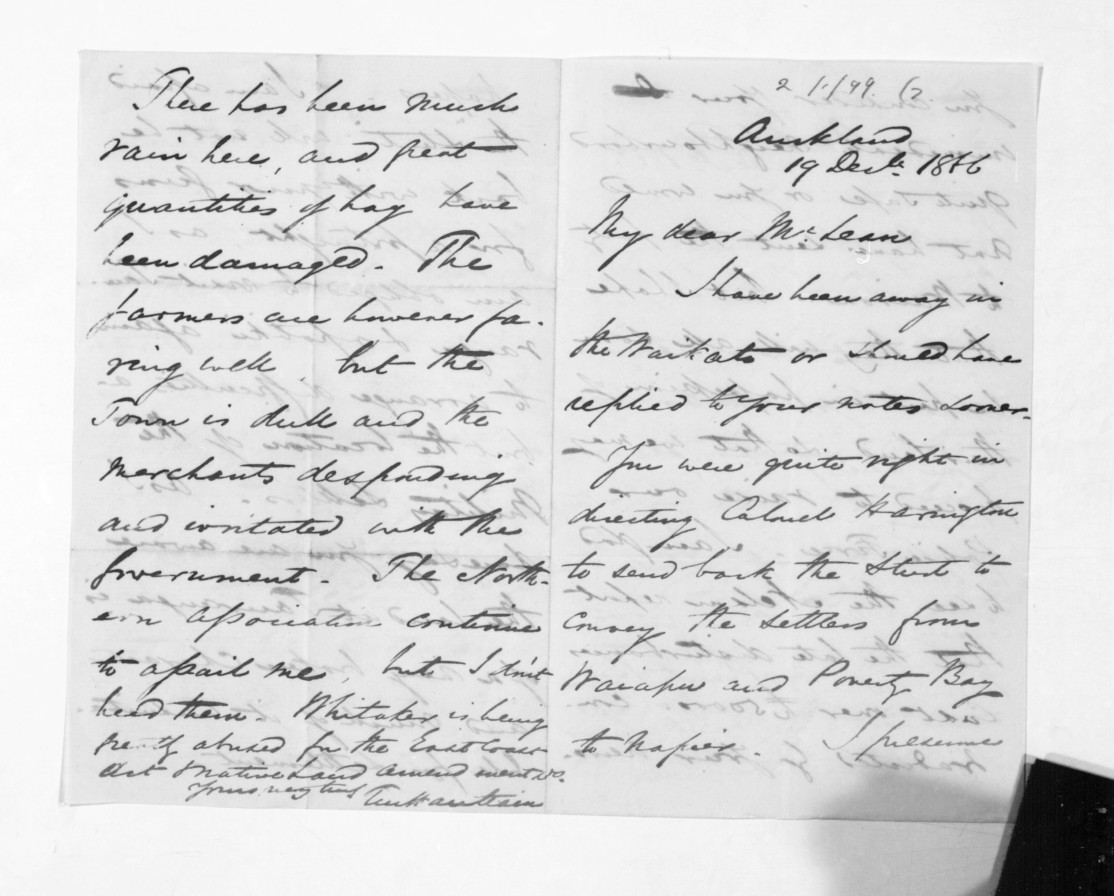 Auckland
19 Decr. 1866
My dear McLean
I have been away in
the Waikato or should have
replied to your notes sooner.
You were quite right in
directing Colonel Harington
to send back the Sturt to
convey the settlers from
Waiapu and Poverty Bay
to Napier. I presume
There has been much
rain here, and great
quantities of hay have
been damaged. The
farmers are however fa-
ring well, but the
Town is dull and the
merchants desponding
and irritated with the
Government. The North-
ern Association continue
to assail me, but I don't
heed them. Whitaker is being
greatly abused for the East Coast
Act & Native Land amendment do.
Yours very truly